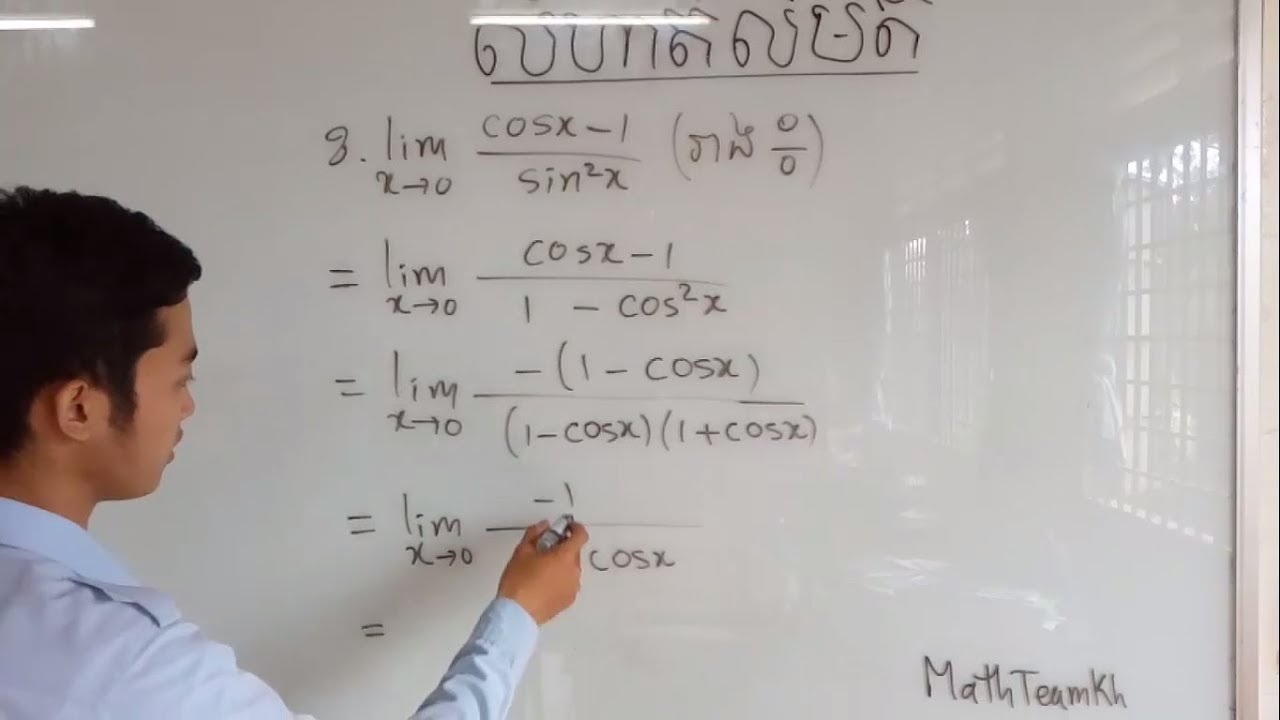 លំហាត់លីមីត
8. lim x→0 cosx − 1 / sin²x (រាង 0/0)
= lim x→0 cosx − 1 / 1 − cos²x
= lim x→0 −(1 − cosx) / (1−cosx)(1+cosx)
= lim x→0 −1 / cosx
=
MathTeamKh